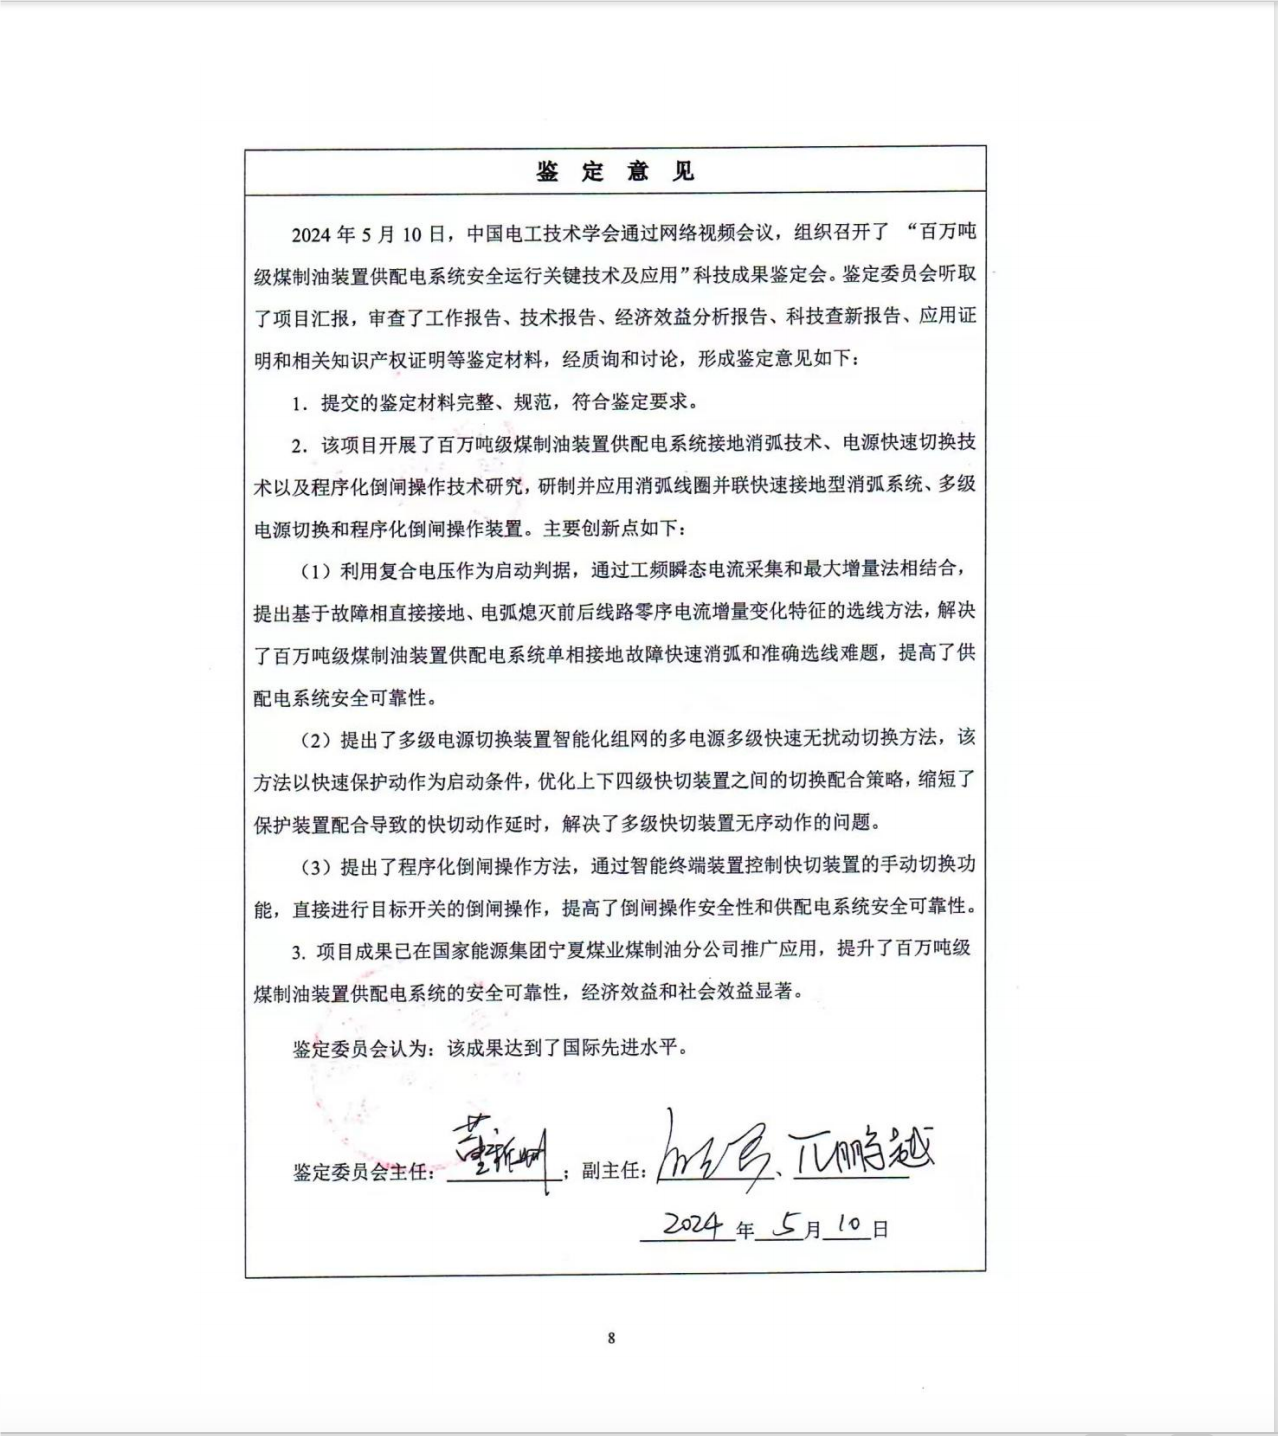 鉴 定 意 见
2024 年 5 月 10 日，中国电工技术学会通过网络视频会议，组织召开了 “百万吨
级煤制油装置供配电系统安全运行关键技术及应用”科技成果鉴定会。鉴定委员会听取
了项目汇报，审查了工作报告、技术报告、经济效益分析报告、科技查新报告、应用证
明和相关知识产权证明等鉴定材料，经质询和讨论，形成鉴定意见如下：
1．提交的鉴定材料完整、规范，符合鉴定要求。
2．该项目开展了百万吨级煤制油装置供配电系统接地消弧技术、电源快速切换技
术以及程序化倒闸操作技术研究，研制并应用消弧线圈并联快速接地型消弧系统、多级
电源切换和程序化倒闸操作装置。主要创新点如下：
（1）利用复合电压作为启动判据，通过工频瞬态电流采集和最大增量法相结合，
提出基于故障相直接接地、电弧熄灭前后线路零序电流增量变化特征的选线方法，解决
了百万吨级煤制油装置供配电系统单相接地故障快速消弧和准确选线难题，提高了供
配电系统安全可靠性。
（2）提出了多级电源切换装置智能化组网的多电源多级快速无扰动切换方法，该
方法以快速保护动作为启动条件，优化上下四级快切装置之间的切换配合策略，缩短了
保护装置配合导致的快切动作延时，解决了多级快切装置无序动作的问题。
（3）提出了程序化倒闸操作方法，通过智能终端装置控制快切装置的手动切换功
能，直接进行目标开关的倒闸操作，提高了倒闸操作安全性和供配电系统安全可靠性。
3. 项目成果已在国家能源集团宁夏煤业煤制油分公司推广应用，提升了百万吨级
煤制油装置供配电系统的安全可靠性，经济效益和社会效益显著。
鉴定委员会认为：该成果达到了国际先进水平。
鉴定委员会主任： ；副主任： 、
2024 年 5 月 10 日
8